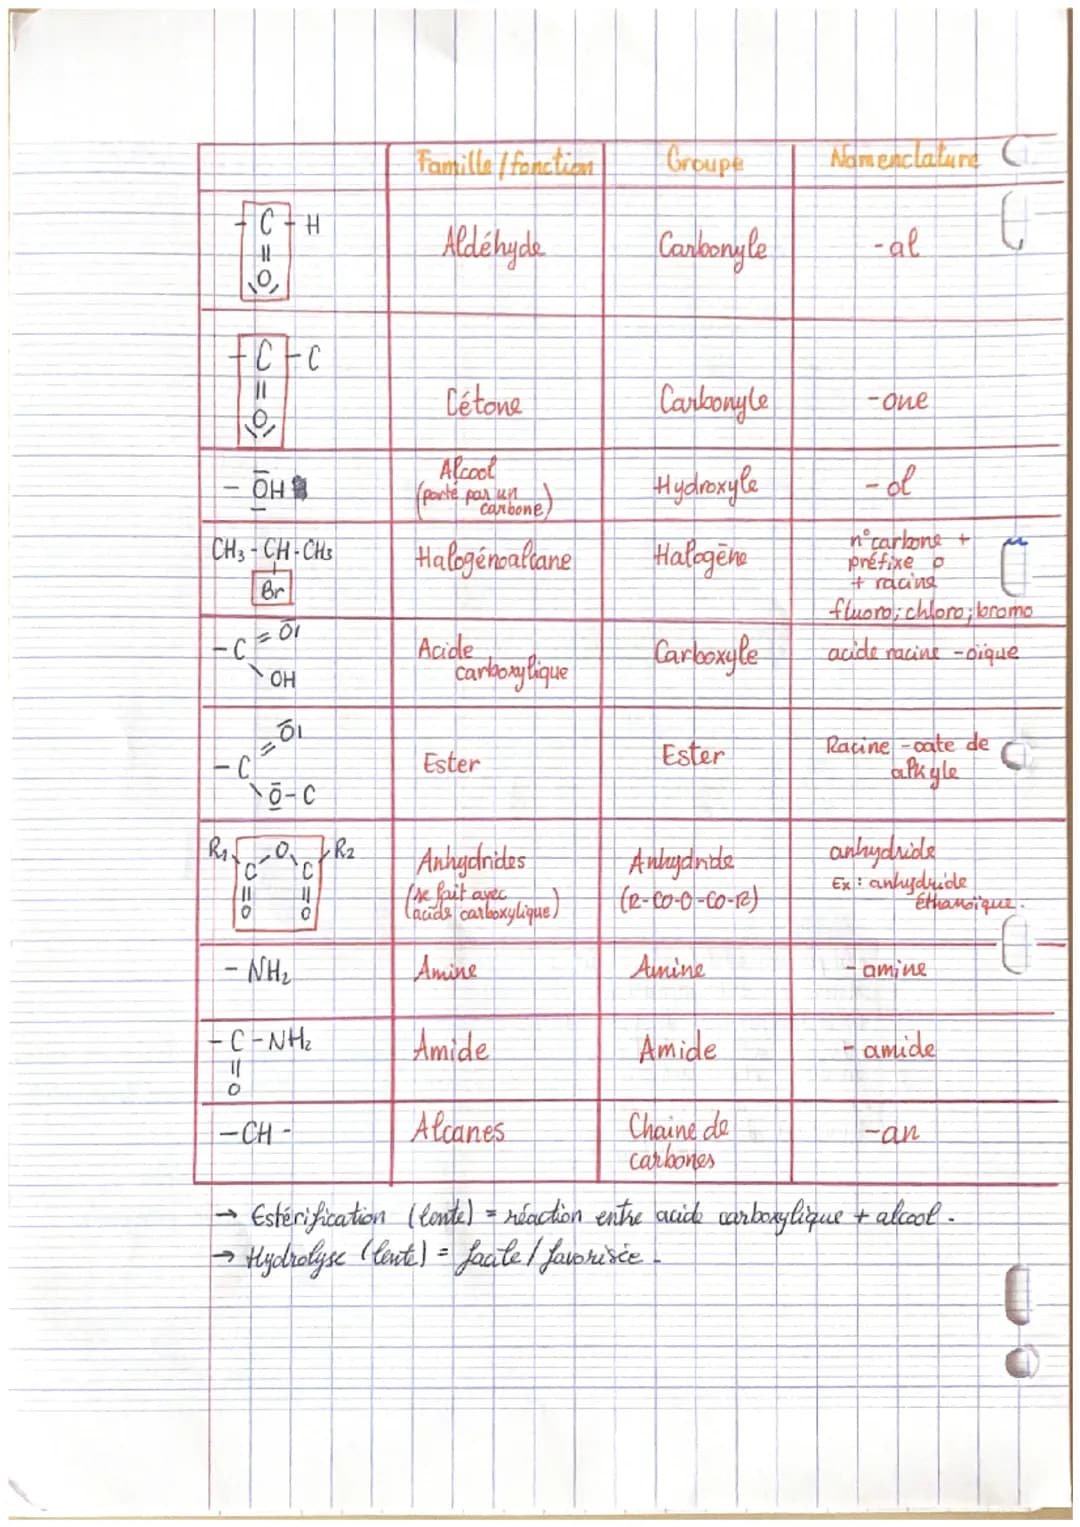 Famille / fonction Groupe Nomenclature
- C - H
||
O
Aldéhyde Carbonyle -al
- C - C
||
O
Cétone Carbonyle -one
- OH
Alcool
(porté par un
carbone)
Hydroxyle -ol
CH3 - CH - CH3
Br
Halogénoalcane Halogène
n° carbone +
préfixe o
+ racine
fluoro; chloro; bromo
- C = O
OH
Acide
carboxylique
Carboxyle acide racine -oïque
- C = O
O - C
Ester Ester
Racine -oate de
alkyle
R1 O R2
C C
|| ||
O O
Anhydrides
(se fait avec
acide carboxylique)
Anhydride
(R-CO-O-CO-R)
anhydride
Ex : anhydride
éthanoïque.
- NH2 Amine Amine -amine
- C - NH2
||
O
Amide Amide -amide
- CH - Alcanes
Chaine de
carbones
-an
→ Estérification (lente) = réaction entre acide carboxylique + alcool.
→ Hydrolyse (lente) = facile / favorisée.